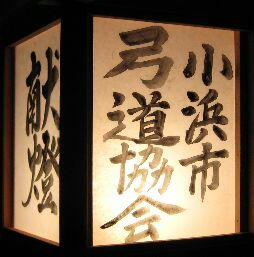 小浜市
弓道協会
献燈